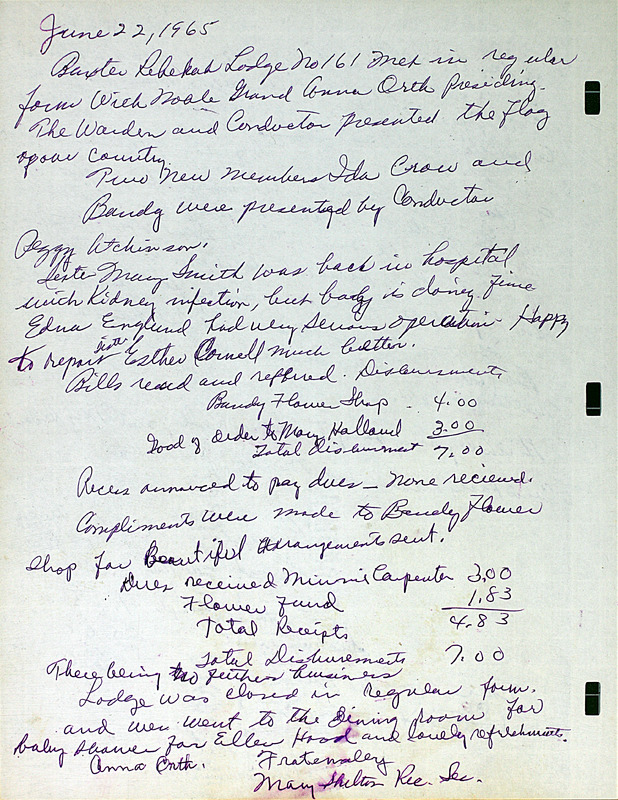 June 22, 1965
Baxter Rebekah Lodge No 161 met in regular
form With Noble Grand Anna Orth Presiding.
The Warden and Conductor presented the Flag
of our country.
Two New members Ida Crow and
Bandy were presented by Conductor
Peggy Atchinson.
Sister Mary Smith was back in hospital
with Kidney infection, but baby is doing fine
Edna England had very serious operation Happy
to report Sister Esther Cornell much better.
Bills read and reffered. Disbursments
Bandy Flower Shop 4.00
Good of Order to Mary Holland 3.00
Total Disbursment 7.00
Reces announced to pay dues – None recieved.
Compliments were made to Bandy Flower
Shop for Beautiful Arrangements sent.
Dues received Minnie Carpenter 3.00
Flower Fund 1.83
Total Receipts 4.83
Total Disbursements 7.00
There being no further business
Lodge was closed in regular form.
and went to the Dining room for
baby shower for Ellen Hood and lovely refreshments.
Anna Orth. Fraternally
Mary Shelton Rec. Sec.